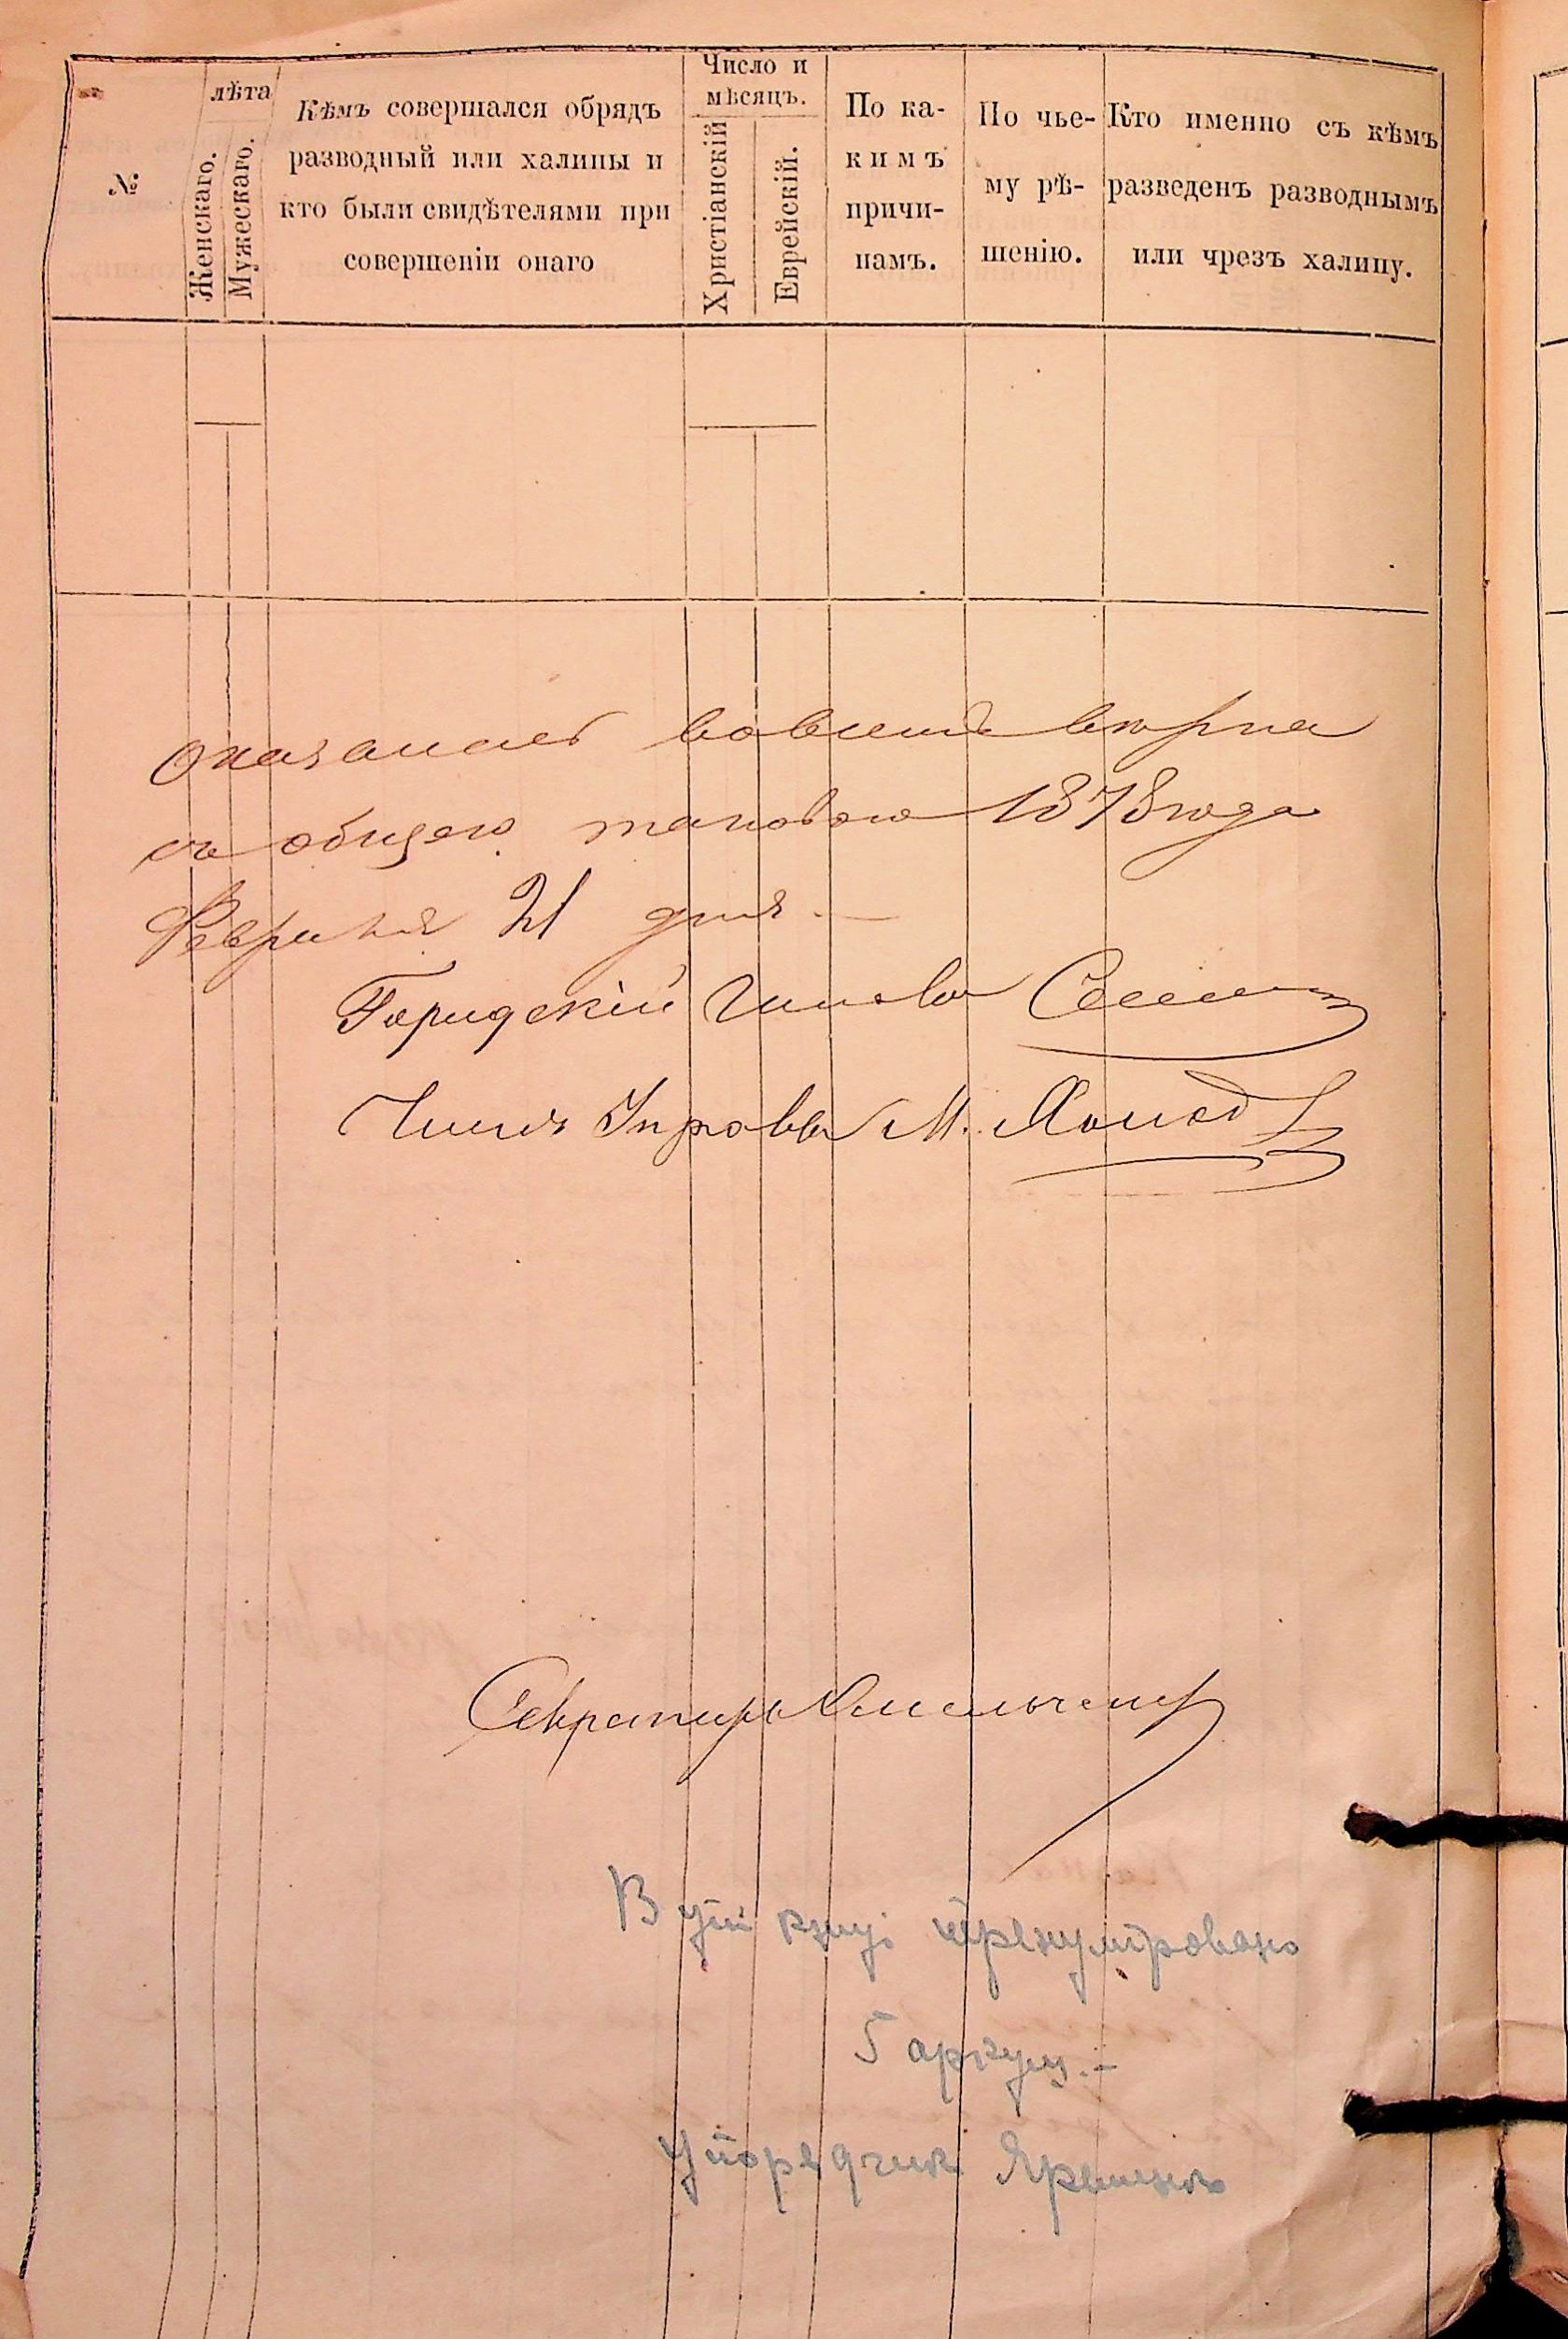 №
лѣта
Женскаго.
Мужескаго.
Кѣмъ совершался обрядъ
разводный или халицы и
кто были свидѣтелями при
совершеніи онаго
Число и
мѣсяцъ.
Христіанскій
Еврейскій.
По ка-
кимъ
причи-
намъ.
По чье-
му рѣ-
шенію.
Кто именно съ кѣмъ
разведенъ разводнымъ
или чрезъ халицу.
оказалась вовсемъ вѣрна
съ общею таковою 1878 года
Февраля 21 дня. —
Городскій Голова
Членъ Управы М.
Секретарь
В цій книзі пронумеровано
5 аркуш. –
Упорядчик Яременко